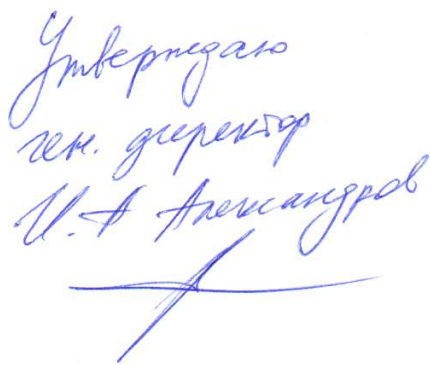 Утверждаю
ген. директор
И.А Александров